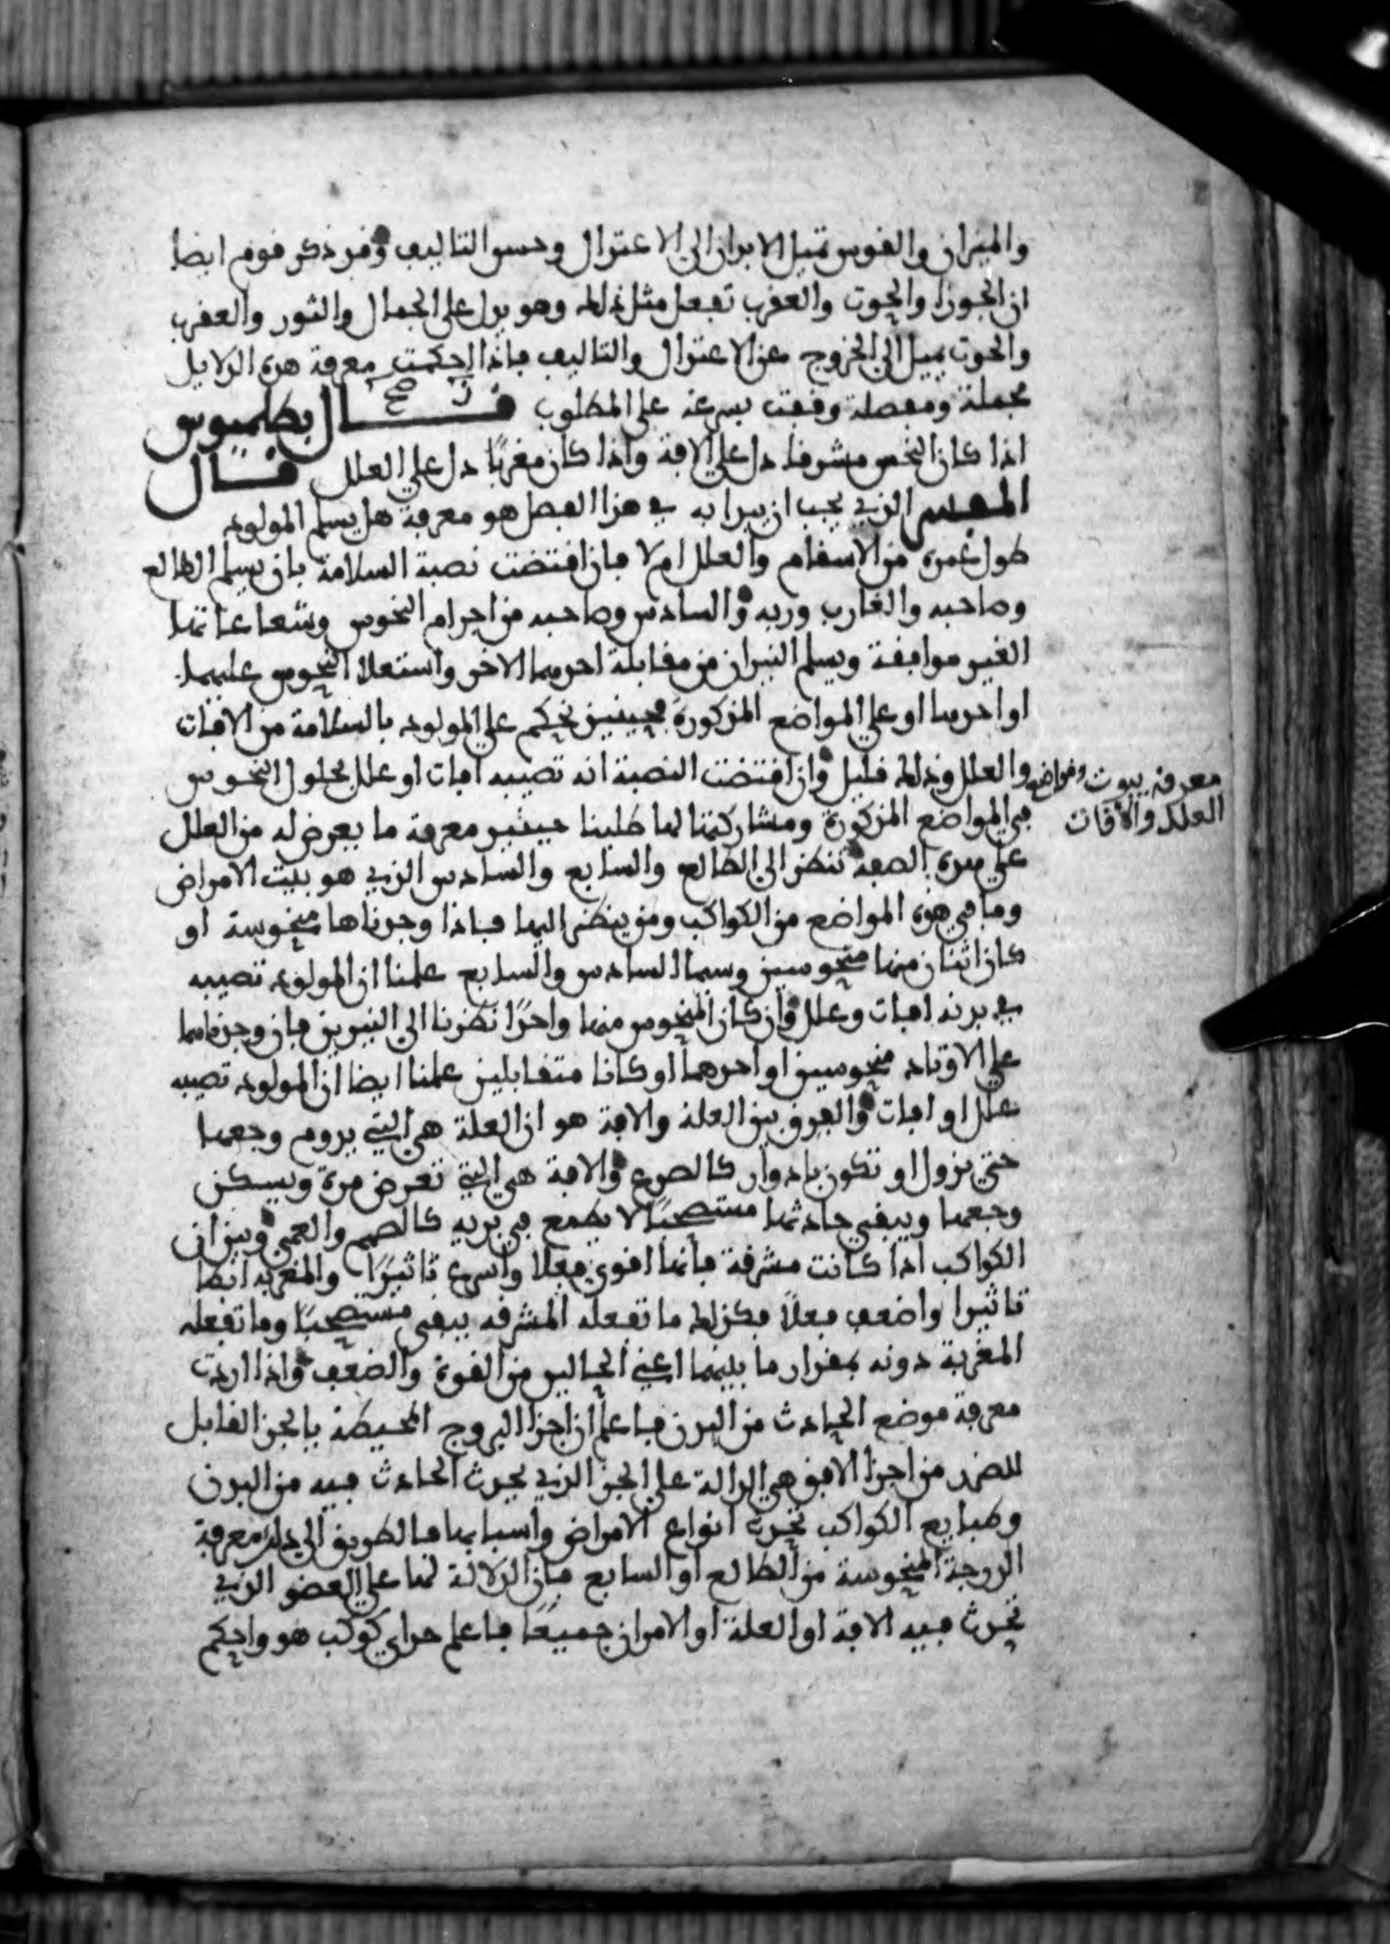 والميزان والقوس تميل الابدان الى الاعتدال وحسن التاليف وقد ذكر قوم ايضا
ان الجوزا والحوت والعقرب تفعل مثل ذلك وهو يدل على الجمال والثور والعقرب
والحوت يميل الى الخروج عن الاعتدال والتاليف فاذا احكمت معرفة هذه الدلايل
مجملة ومفصلة وقفت بسرعة على المطلوب قـــال بطلميوس
اذا كان النحس مشرقا دل على الافة واذا كان مغربًا دل على العلل قـــال
المفسر الذي يجب ان يبرا به في هذا الفصل هو معرفة هل يسلم المولود
طول عمره من الاسقام والعلل ام لا فان اقتضت نصبة السلامة بان يسلم الطالع
وصاحبه والغارب وربه والسادس وصاحبه من اجرام النحوس وشعاعاتها
الغير موافقة ويسلم النيران من مقابلة احدهما الاخر واستعلا النحوس عليهما
او احدهما او على المواضع المذكورة فحينيذ نحكم على المولود بالسلامة من الافات
والعلل وذلك قليل وان اقتضت النصبة انه تصيبه افات او علل بحلول النحوس
في المواضع المذكورة ومشاركتها لها طلبنا حينيذ معرفة ما يعرض له من العلل
على هذه الصفة ننظر الى الطالع والسابع والسادس الذي هو بيت الامراض
وما في هذه المواضع من الكواكب ومن ينظر اليها فاذا وجدناها منحوسة او
كان اثنان منها منحوسين وسيما السادس والسابع علمنا ان المولود تصيبه
في بدنه افات وعلل وان كان المنحوس منها واحدًا نظرنا الى النيرين فان وجدناهما
على الاوتاد منحوسين او احدهما او كانا متقابلين علمنا ايضا ان المولود تصيبه
علل او افات والفرق بين العلة والافة هو ان العلة هي التي يدوم وجعها
حتى يزول او تكون بادوار كالصرع والافة هي التي تعرض مرة ويسكن
وجعها ويبقى حادثها مستصحبًا لا يطمع في بريه كالصمم والعمى وبين ان
الكواكب اذا كانت مشرقة فانها اقوى فعلا واسرع تاثيرًا والمغربه ابطا
تاثيرا واضعف فعلاً فكذلك ما تفعله المشرقه يبقى مستصحبًا وما تفعله
المغربة دونه بمقدار ما بينهما اعني الحالين من القوة والضعف واذا اردت
معرفة موضع الحادث من البدن فاعلم ان اجزا البروج المحيطة بالجز القابل
للضرر من اجزا الافق هي الدالة على الجز الذي يحدث الحادث فيه من البدن
وطبايع الكواكب تحدث انواع الامراض واسبابها فالطريق الى ذلك معرفة
الدرجة المنحوسة من الطالع او السابع فان الدلالة لها على العضو الذي
تحدث فيه الافة او العلة او الامران جميعًا فاعلم حد اي كوكب هو واحكم
معرفة بيوت ومواضع
العلل والأفات